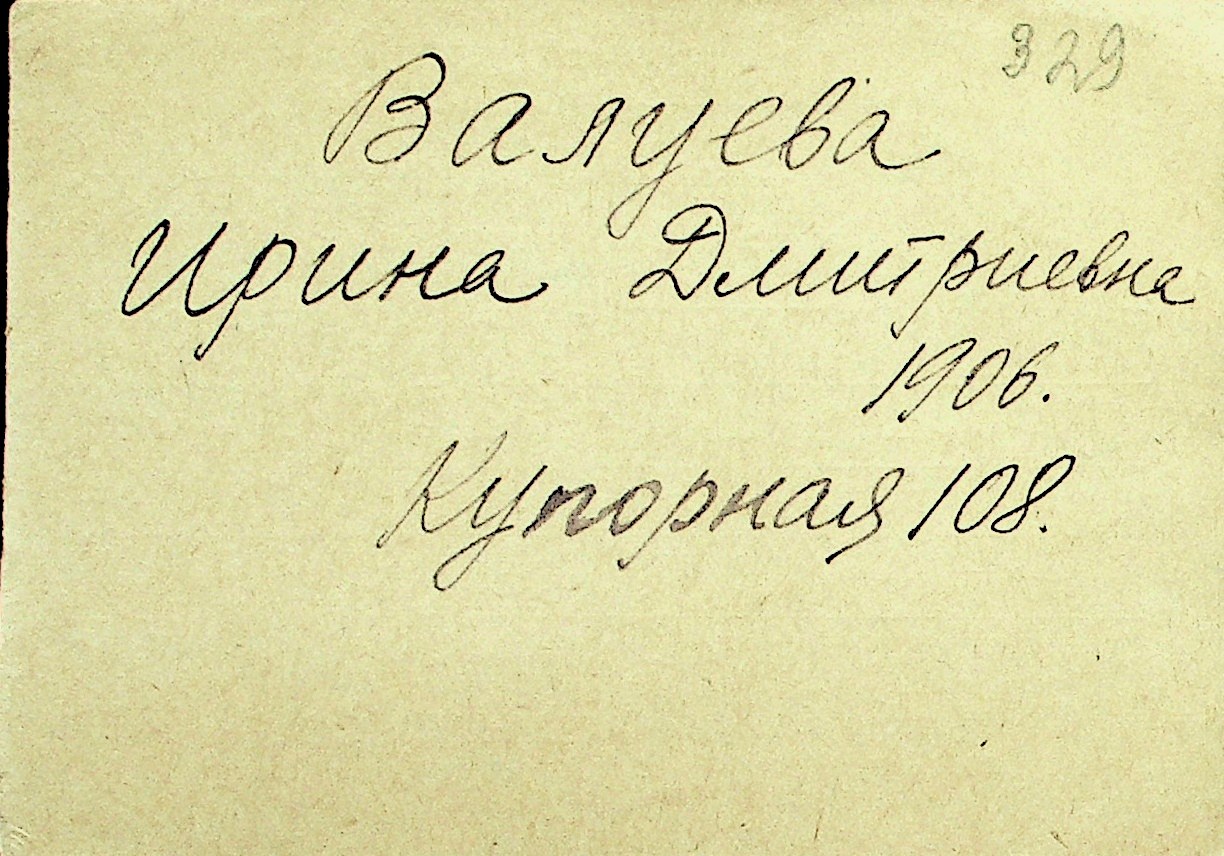 329
Валуева
Ирина Дмитриевна
1906.
Купорная 108.